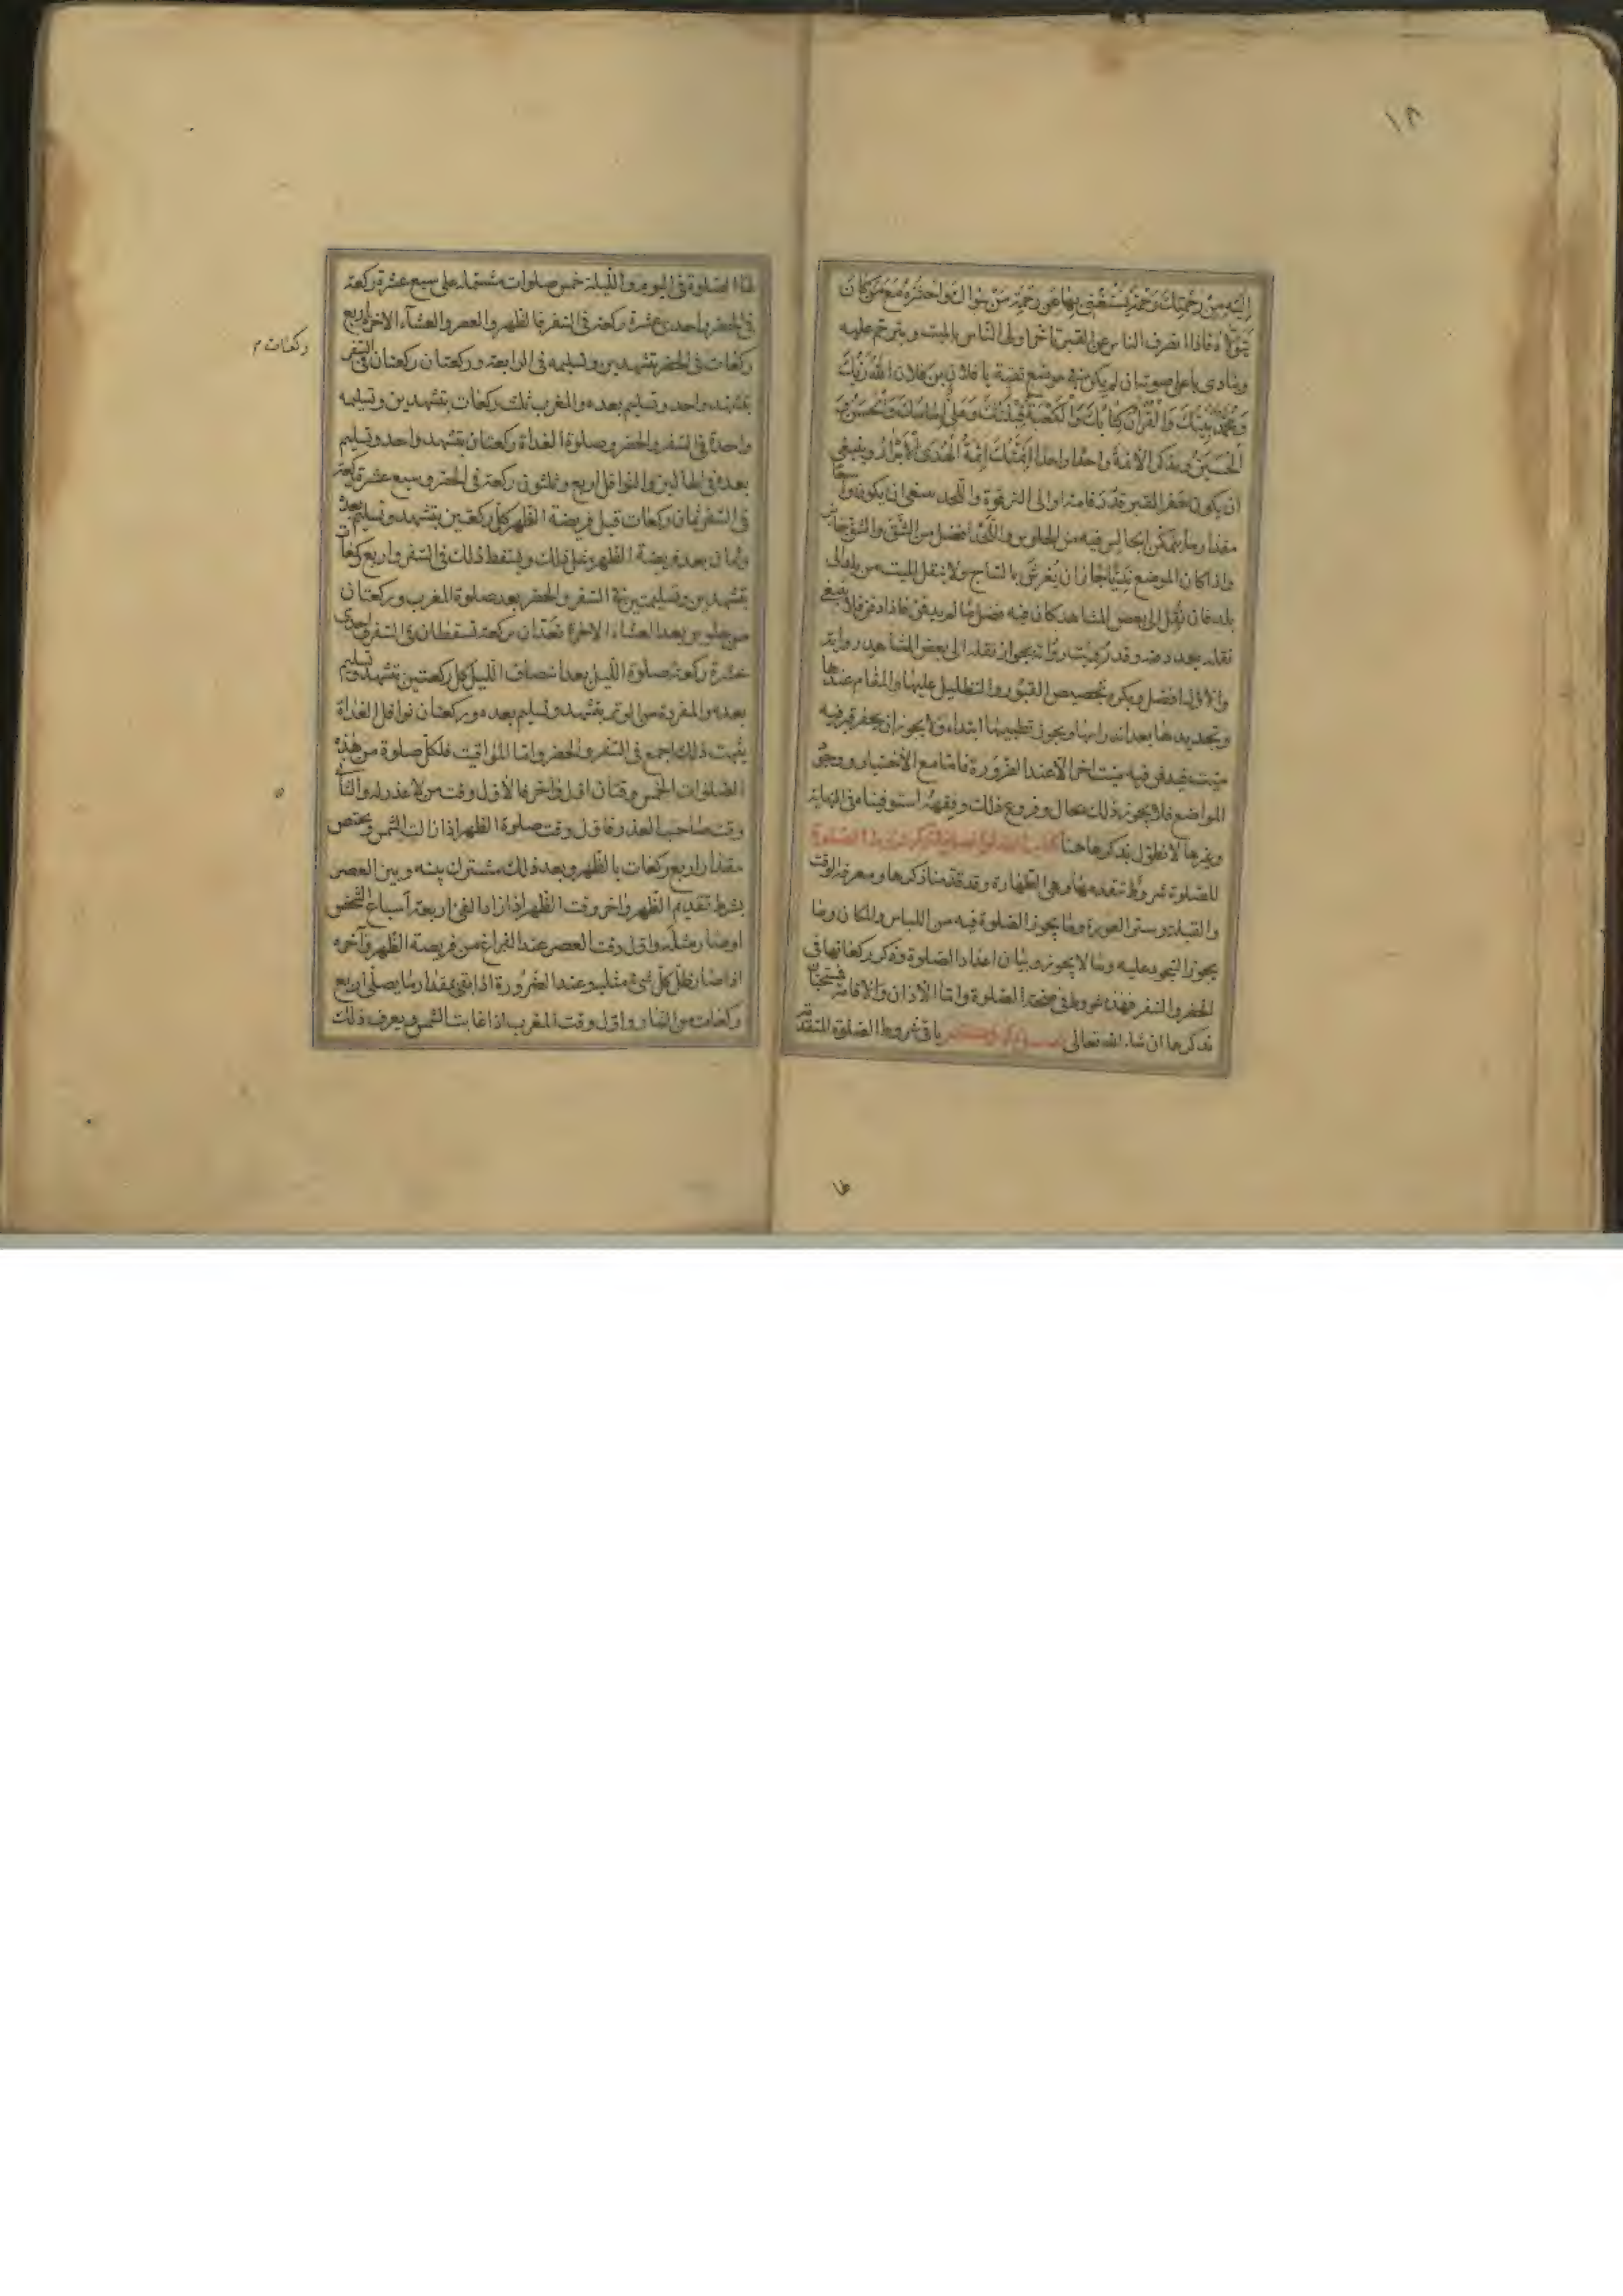 ١٨
اليه من رحمتك رحمة يستغنى بها عن رحمة من سواك واحشره مع من كان
يتولاه فاذا انصرف الناس عن القبر تاخر اولى الناس بالميت ويترحم عليه
وينادى باعلى صوته ان لم يكن فى موضع تقية يا فلان بن فلان الله ربك
ومحمد نبيك والقرآن كتابك والكعبة قبلتك وعلى امامك والحسن و
الحسين ويذكر الائمة واحدا واحدا ائمتك ائمة الهدى الابرار وينبغى
ان يكون حفر القبر قدر قامة او الى الترقوة واللحد ينبغى ان يكون واسعا
مقدار ما يتمكن الجالس فيه من الجلوس واللحد افضل من الشق والشق جائز
واذا كان الموضع نديا جاز ان يفرش بالساج ولا ينقل الميت من بلد الى
بلد فان نقل الى بعض المشاهد كان فيه فضل ما لم يدفن فاذا دفن فلا ينبغى
نقله بعد دفنه وقد رويت رواية بجواز نقله الى بعض المشاهد رواية
والاول افضل ويكره تجصيص القبور والتظليل عليها والمقام عندها
وتجديدها بعد اندراسها ويجوز تطيينها ابتداء ولا يجوز ان يحفر قبر فيه
ميت فيدفن فيه ميت اخر الا عند الضرورة فاما مع الاختيار ووجود
المواضع فلا يجوز ذلك بحال وفروع ذلك وفقهه استوفيناه فى النهاية
وغيرها لا نطول بذكرها هنا كتاب الصلوة فصل فى ذكر شروط الصلوة
للصلوة شروط تتقدمها وهى الطهارة وقد قدمنا ذكرها ومعرفة الوقت
والقبلة وستر العورة وما يجوز الصلوة فيه من اللباس والمكان وما
يجوز السجود عليه وما لا يجوز وبيان اعداد الصلوة وذكر ركعاتها فى
الحضر والسفر فهذه شروط فى صحة الصلوة واما الاذان والاقامة فسنتان
نذكرها ان شاء الله تعالى باقى شروط الصلوة المتقدمة
١٨
لها الصلوة فى اليوم والليلة خمس صلوات مشتملة على سبع عشرة ركعة
فى الحضر واحدى عشرة ركعة فى السفر فالظهر والعصر والعشاء الاخرة اربع
ركعات م
ركعات فى الحضر بتشهدين وتسليمه فى الرابعة وركعتان ركعتان فى السفر
بتشهد واحد وتسليم بعده والمغرب ثلث ركعات بتشهدين وتسليمه
واحدة فى السفر والحضر وصلوة الغداة ركعتان بتشهد واحد وتسليم
بعده فى الحالين والنوافل اربع وثلثون ركعة فى الحضر وسبع عشرة ركعة
فى السفر ثمان ركعات قبل فريضة الظهر كل ركعتين بتشهد وتسليم بعده
وثمان بعد فريضة الظهر مثل ذلك ويسقط ذلك فى السفر واربع ركعات
بتشهدين وتسليمتين فى السفر والحضر بعد صلوة المغرب وركعتان
من جلوس بعد العشاء الاخرة تعدان بركعة تسقطان فى السفر واحدى
عشرة ركعة صلوة الليل بعد انتصاف الليل كل ركعتين بتشهد وتسليم
بعده والمفردة من الوتر بتشهد وتسليم بعده وركعتان نوافل الغداة
يثبت ذلك اجمع فى السفر والحضر واما المواقيت فلكل صلوة من هذه
الصلوات الخمس وقتان اول واخر فالاول وقت من لا عذر له والثانى
وقت صاحب العذر فاول وقت صلوة الظهر اذا زالت الشمس ويختص
مقدار اربع ركعات بالظهر وبعد ذلك مشترك بينه وبين العصر
بشرط تقديم الظهر واخر وقت الظهر اذا زاد الفئ اربعة اسباع الشخص
او صار مثله واول وقت العصر عند الفراغ من فريضة الظهر وآخره
اذا صار ظل كل شئ مثليه وعند الضرورة اذا بقى مقدار ما يصلى اربع
ركعات من النهار واول وقت المغرب اذا غابت الشمس ويعرف ذلك